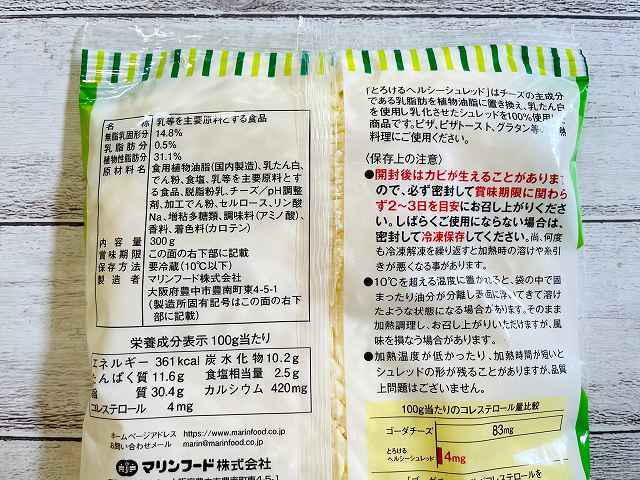 名称 乳等を主要原料とする食品
無脂乳固形分 14.8%
乳脂肪分 0.5%
植物性脂肪分 31.1%
原材料名 食用植物油脂(国内製造)、乳たん白、
でん粉、食塩、乳等を主要原料とす
る食品、脱脂粉乳、チーズ/pH調整
剤、加工でん粉、セルロース、リン酸
Na、増粘多糖類、調味料(アミノ酸)、
香料、着色料(カロテン)
内容量 300g
賞味期限 この面の右下部に記載
保存方法 要冷蔵(10℃以下)
製造者 マリンフード株式会社
大阪府豊中市豊南町東4-5-1
(製造所固有記号はこの面の右下
部に記載)
栄養成分表示 100g当たり
エネルギー 361kcal 炭水化物 10.2g
たんぱく質 11.6g 食塩相当量 2.5g
脂質 30.4g カルシウム 420mg
コレステロール 4mg
ホームページアドレス https://www.marinfood.co.jp
お問い合わせメール marin@marinfood.co.jp
マリンフード株式会社
大阪府豊中市豊南町東4-5-1
「とろけるヘルシーシュレッド」はチーズの主成分
である乳脂肪を植物油脂に置き換え、乳たん白
を使用し乳化させたシュレッドを100%使用
商品です。ピザ、ピザトースト、グラタン等、
料理にご使用ください。
〈保存上の注意〉
●開封後はカビが生えることがあります
ので、必ず密封して賞味期限に関わら
ず2~3日を目安にお召し上がりくださ
い。しばらくご使用にならない場合は、
密封して冷凍保存してください。尚、何度
も冷凍解凍を繰り返すと加熱時の溶けや糸引
きが悪くなる事があります。
●10℃を超える温度に置かれると、袋の中で固
まったり油分が分離し表面に浮いてきて溶け
たような状態になる場合があります。そのまま
加熱調理し、お召し上がりいただけますが、風
味を損なう場合があります。
●加熱温度が低かったり、加熱時間が短いと
シュレッドの形が残ることがありますが、品質
上問題はございません。
100g当たりのコレステロール量比較
ゴーダチーズ 83mg
とろける
ヘルシーシュレッド 4mg